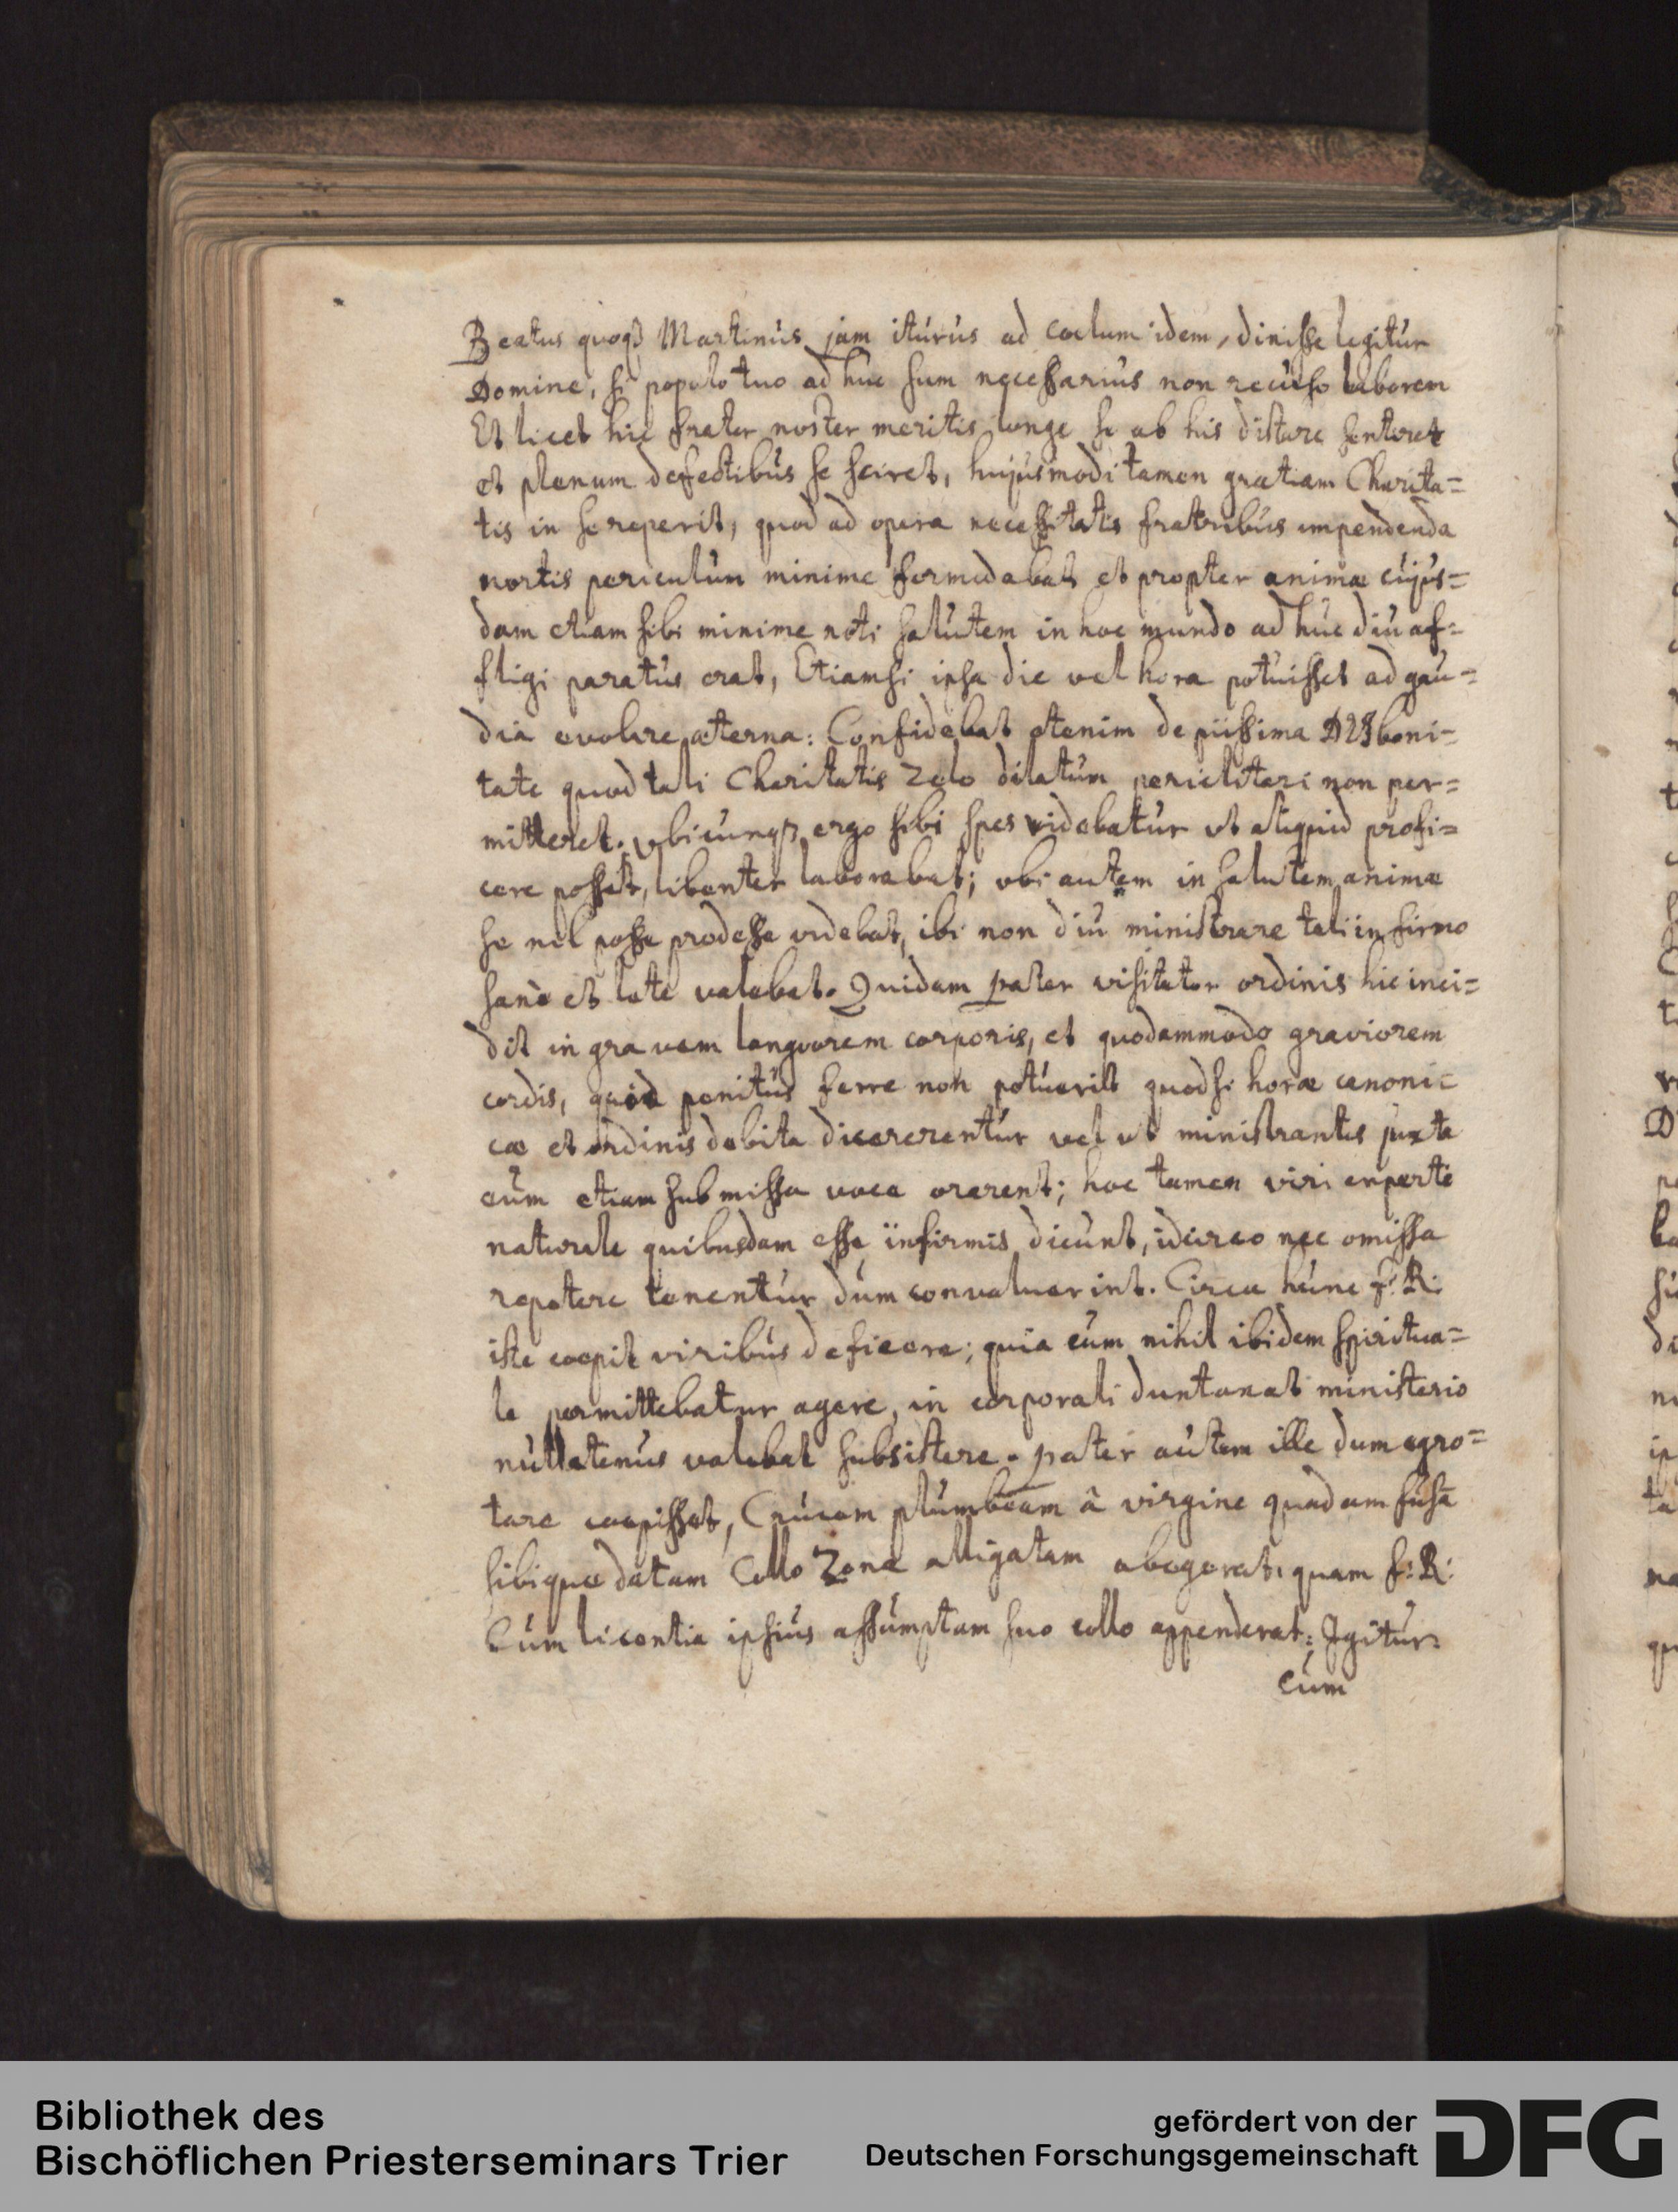 Beatus quoqȝ Martinus jam iturus ad coelum idem, dixisse legitur
Domine, si populo tuo ad huc sum necessarius non recuso laborem
Et licet hic frater noster meritis longe se ab his distare sentiret
et plenum defectibus se sciret, hujusmodi tamen gratiam Charita=
tis in se reperit, quod ad opera necessitatis fratribus impendenda
mortis periculum minime formidabat et propter animæ cujus=
dam etiam sibi minime noti salutem in hoc mundo ad huc diu af=
fligi paratus erat, Etiamsi ipsa die vel hora potuisset ad gau=
dia evolare æterna: Confidebat etenim de piissima DEI boni=
tate quod tali Charitatis Zelo dilatum periclitari non per=
mitteret. vbicunqȝ ergo sibi spes videbatur vt aliquid profi=
cere posset, libenter laborabat; vbi autem in salutem animæ
se nil posse prodesse videbat, ibi non diu ministrare tali infirmo
sane et late valebat. Quidam pater visitator ordinis hic inci=
dit in gravem languorem corporis, et quodammodo graviorem
cordis, quia penitus ferre non potuerit quod si horæ canoni=
cæ et ordinis debita dicererentur vel vt ministrantes juxta
eum etiam submissa voce orarent; hoc tamen viri experti
naturale quibusdam esse infirmis dicunt, idcirco nec omissa
repetere tenentur dum convaluerint. Circa hunc f: R:
iste coepit viribus deficere; quia cum nihil ibidem spiritua=
le permittebatur agere, in corporali duntaxat ministerio
nullatenus valebat subsistere. pater autem ille dum ægro=
tare coepisset, Crucem plumbeam â virgine quadam fusa
sibique datam Collo Zona alligatam abegerat, quam f: R:
Cum licentia ipsius assumptam suo collo appenderat: Igitur
cum
Bibliothek des
Bischöflichen Priesterseminars Trier
gefördert von der
Deutschen Forschungsgemeinschaft
DFG